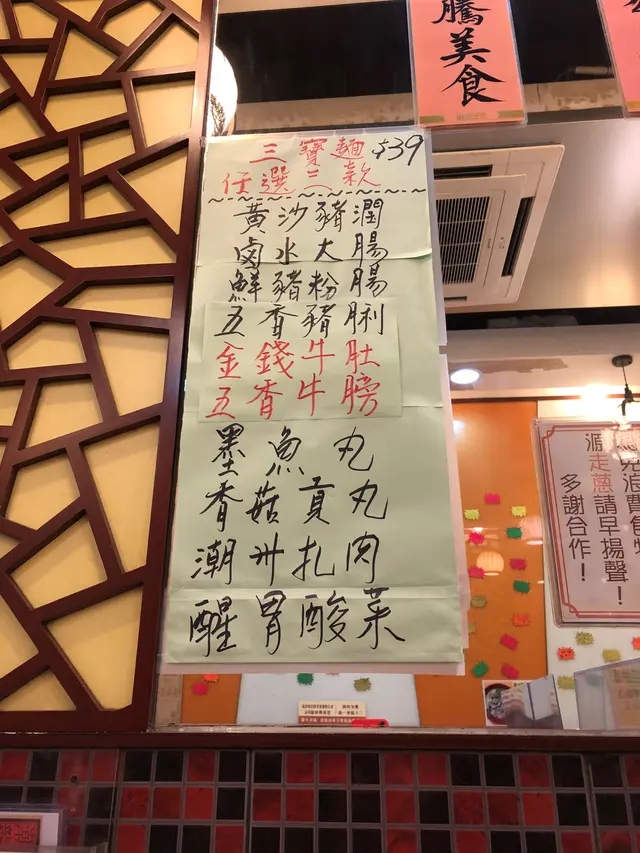 騰美食
三寶麵 $39
任選三款
黃沙豬潤
鹵水大腸
鮮豬粉腸
五香豬脷
金錢牛肚
五香牛膀
墨魚丸
香菇貢丸
潮州扎肉
醒胃酸菜
走蔥請早揚聲！
多謝合作！